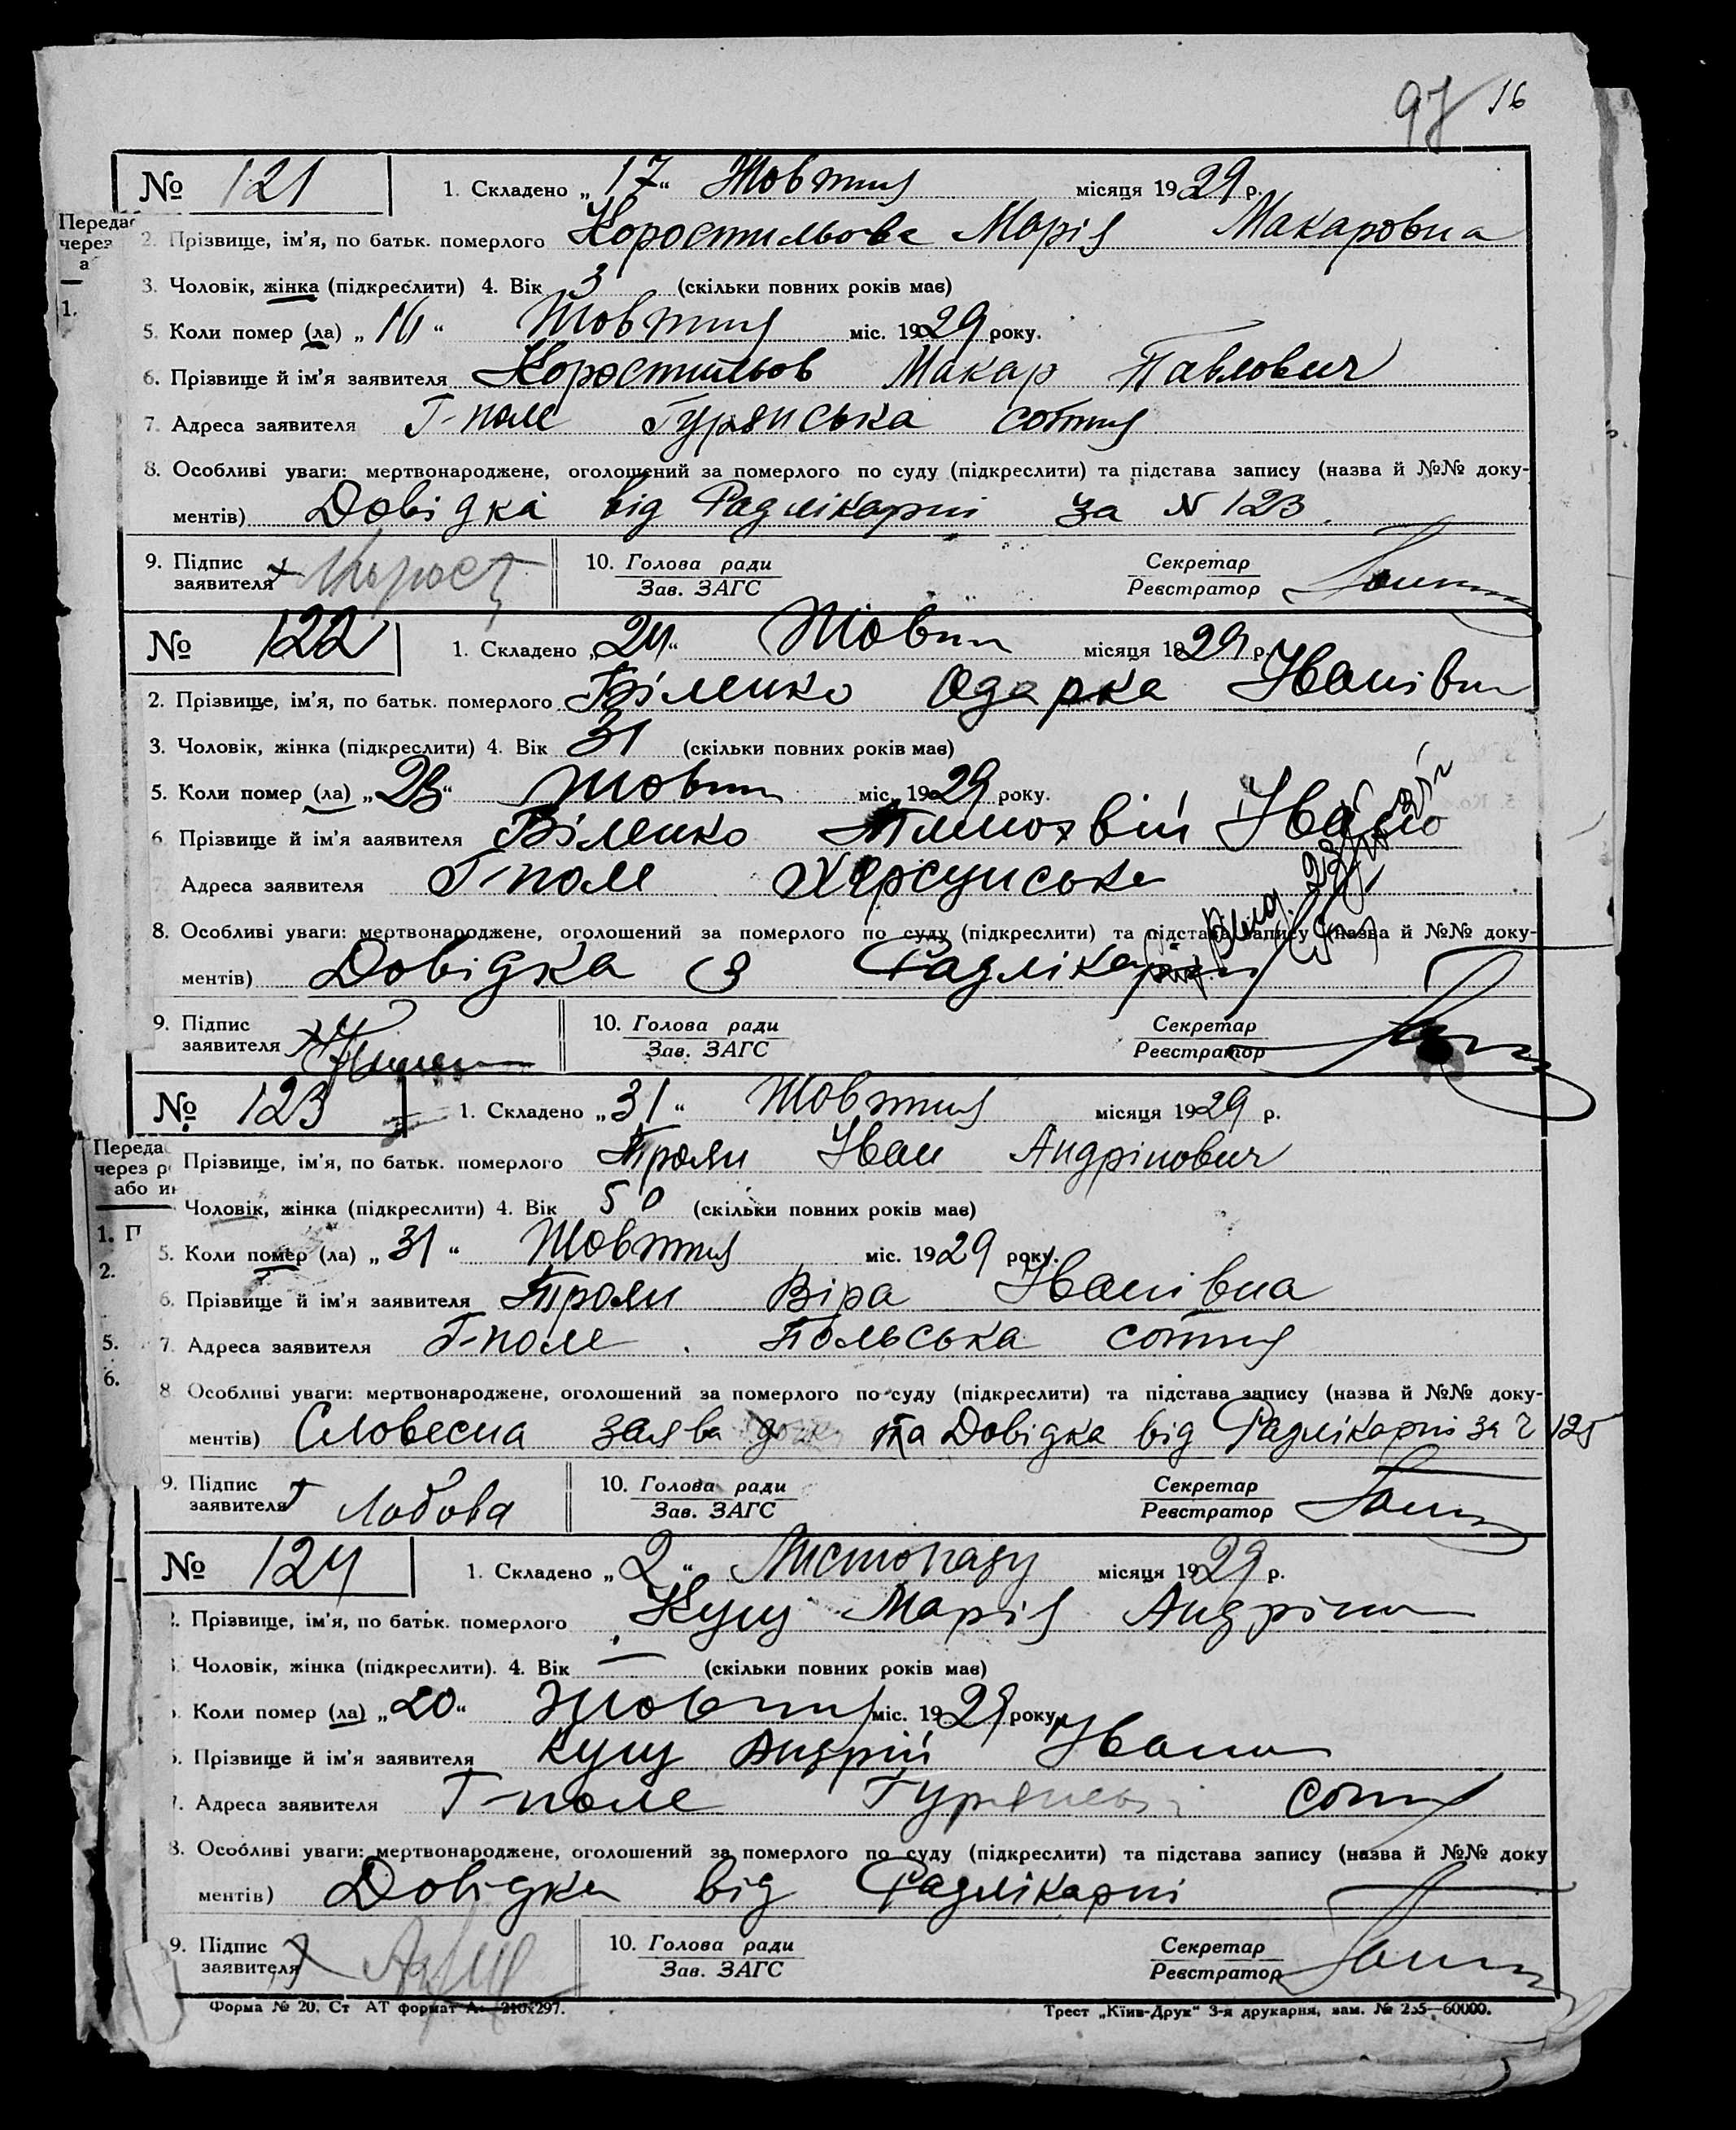 97 16
№ 121 1. Складено „17“ Жовтня місяця 1929 р.
Передас
через
а
2. Прізвище, ім’я, по батьк. померлого Коростильова Марія Макаровна
3. Чоловік, жінка (підкреслити) 4. Вік 3 (скільки повних років має)
1.
5. Коли помер (ла) „16“ Жовтня міс. 1929 року.
6. Прізвище й ім’я заявителя Коростильов Макар Павлович
7. Адреса заявителя Г-поле Гурянська сотня
8. Особливі уваги: мертвонароджене, оголошений за померлого по суду (підкреслити) та підстава запису (назва й №№ доку-
ментів) Довідка від Радлікарні за N 123.
9. Підпис заявителя Корост 10. Голова ради Секретар
Зав. ЗАГС Реєстратор
№ 122 1. Складено „24“ Жовтн місяця 1929 р.
2. Прізвище, ім’я, по батьк. померлого Біленко Одарка Іванівн
3. Чоловік, жінка (підкреслити) 4. Вік 31 (скільки повних років має)
5. Коли помер (ла) „23“ Жовтн міс. 1929 року.
6 Прізвище й ім’я заявителя Біленко Тимохвій
Адреса заявителя Г-поле Херсунська
8. Особливі уваги: мертвонароджене, оголошений за померлого по суду (підкреслити) та підстава запису (назва й №№ доку-
ментів) Довідка з Радлікарні
9. Підпис заявителя 10. Голова ради Секретар
Зав. ЗАГС Реєстратор
№ 123 1. Складено „31“ Жовтня місяця 1929 р.
Переда
через р
або ин
Прізвище, ім’я, по батьк. померлого Троян Іван Андрінович
Чоловік, жінка (підкреслити) 4. Вік 50 (скільки повних років має)
1. П
5. Коли помер (ла) „31“ Жовтня міс. 1929 року.
2.
6. Прізвище й ім’я заявителя Троян Віра Іванівна
5.
7. Адреса заявителя Г-поле. Польська сотня
6.
8 Особливі уваги: мертвонароджене, оголошений за померлого по суду (підкреслити) та підстава запису (назва й №№ доку-
ментів) Словесна заява та Довідка від Радлікарні за ч 125
9. Підпис заявителя Лобова 10. Голова ради Секретар
Зав. ЗАГС Реєстратор
№ 124 1. Складено „2“ Листопаду місяця 1929 р.
2. Прізвище, ім’я, по батьк. померлого Кущ Марія Андріин
Чоловік, жінка (підкреслити). 4. Вік — (скільки повних років має)
Коли помер (ла) „20“ Жовтня міс. 1929 року.
Прізвище й ім’я заявителя Кущ Андрій Іванов
7. Адреса заявителя Г-поле Гурянська сотня
8. Особливі уваги: мертвонароджене, оголошений за померлого по суду (підкреслити) та підстава запису (назва й №№ доку
ментів) Довідка від Радлікарні
9. Підпис заявителя 10. Голова ради Секретар
Зав. ЗАГС Реєстратор
Форма № 20. Ст АТ формат А. 210х297. Трест „Київ-Друк“ 3-я друкарня, зам. № 255—60000.